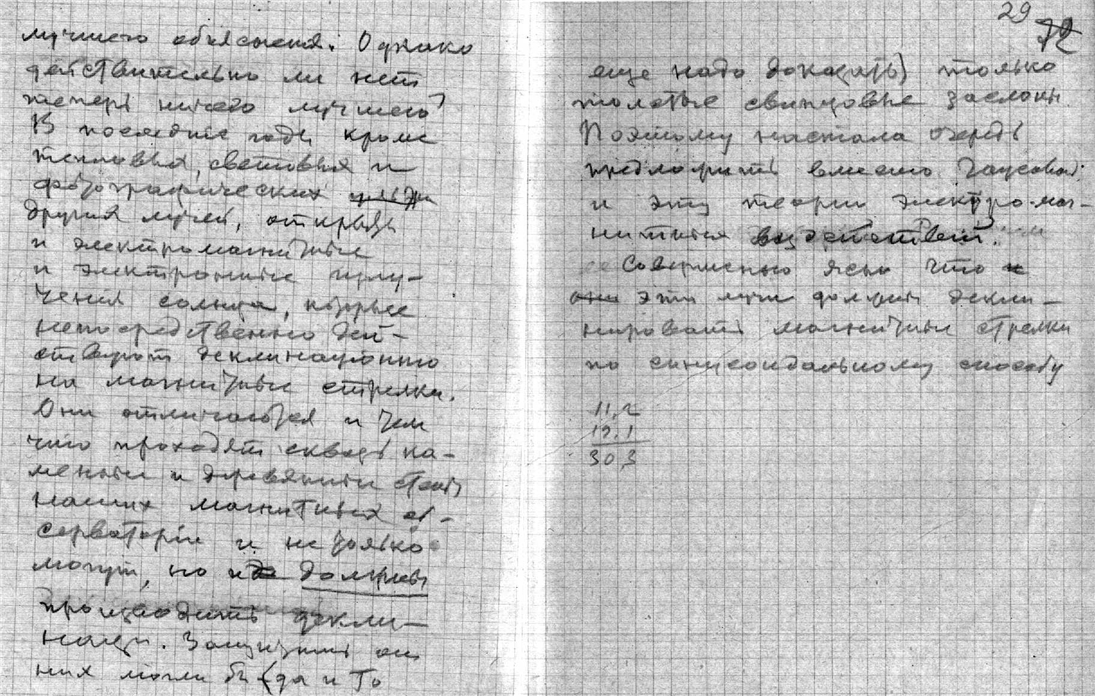 лучшего объяснения. Однако
действительно ли нет
теперь ничего лучшего?
В последние годы кроме
тепловых, световых и
фотографических
других лучей, открыты
и электромагнитные
и электронные излу-
чения солнца, которые
непосредственно дей-
ствуют деклинационно
на магнитные стрелки.
Они отличаются и тем
что проходят сквозь ка-
менные и деревянные стены
наших магнитных об-
серваторій и не только
могут, но и должны
производить декли-
нации. Защитить от
них могли бы (да и то
29
72
еще надо доказать) только
толстые свинцовые заслоны
Поэтому настала очередь
предложить вместо Гаусовой
и эту теорию электро-маг-
нитных воздействий.
Совершенно ясно что
они эти лучи должны декли-
нировать магнитные стрелки
по синусоидальному способу
11,2
19,1
30,3